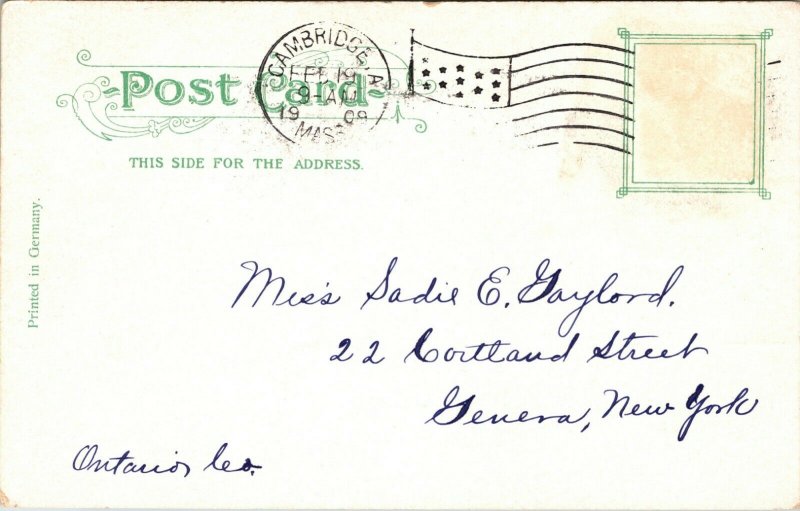 Post Card
CAMBRIDGE, A
FEB 19
9-AM
19 09
MASS
THIS SIDE FOR THE ADDRESS.
Printed in Germany.
Miss Sadie E. Gaylord.
22 Cortland Street
Geneva, New York
Ontario, Co.